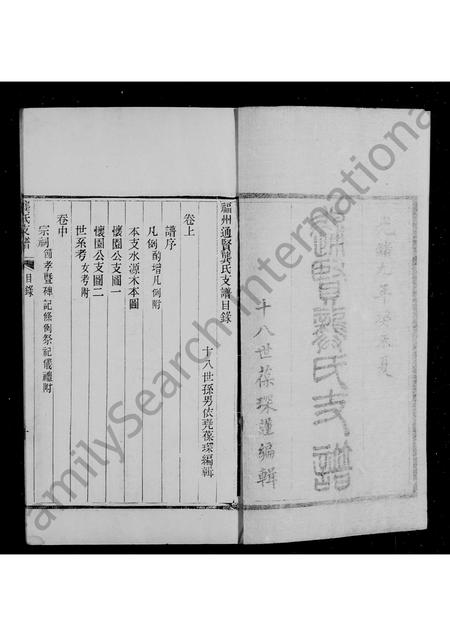 光緒九年癸未夏
通賢龔氏支譜
十八世葆琛謹編輯
福州通賢龔氏支譜目錄
十八世孫男依堯葆琛編輯
卷上
譜序
凡例酌增凡例附
本支水源木本圖
懷園公支圖一
懷園公支圖二
世系考女考附
卷中
宗祠圖考暨碑記條例祭祀儀禮附
龔氏支譜 目錄
FamilySearch International